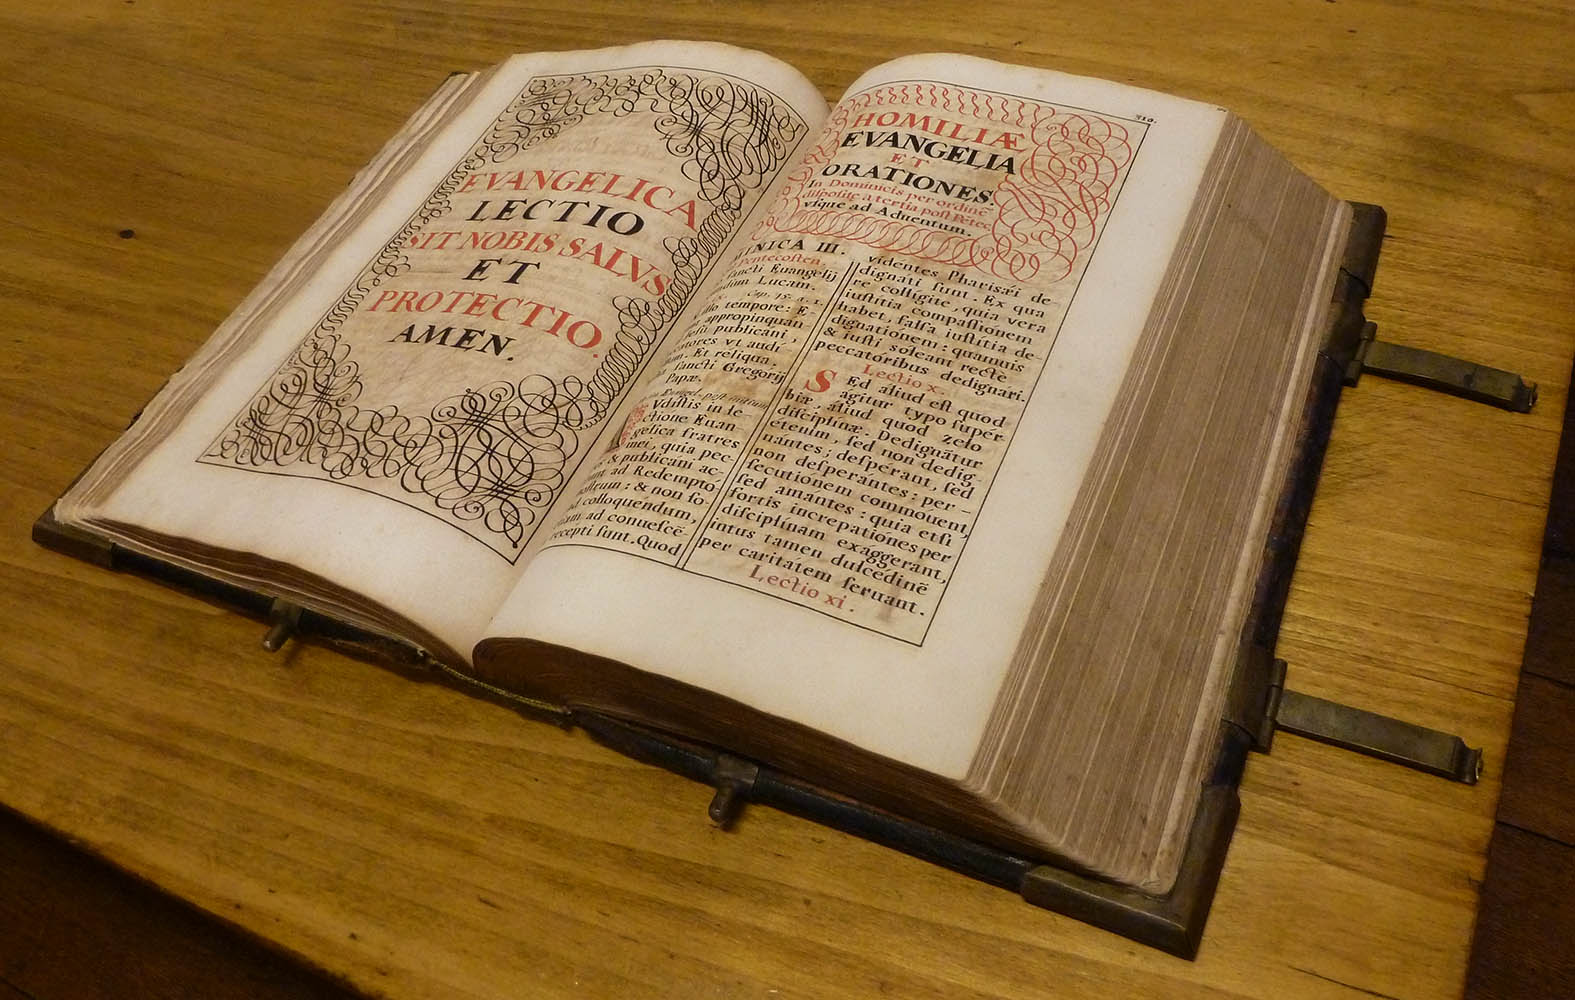 EVANGELICA
LECTIO
SIT NOBIS SALVS
ET
PROTECTIO.
AMEN.
310.
HOMILIÆ
EVANGELIA
ET
ORATIONES.
In Dominicis per ordinē
disposite a tertia post Pētec.
vsque ad Aduentum.
NICA III.
Pentecosten.
sancti Euangelij
Lucam.
Cap. 15. a. 1.
tempore: E-
appropinquan-
publicani,
vt audi-
Et reliqua,
sancti Gregorij
Papæ.
Vdistis in le-
ctione Euan-
gelica fratres
mei, quia pec-
& publicani ac-
ad Redempto-
& non so-
colloquendum,
ad conuescē-
recepti sunt. Quod
videntes Pharisæi de-
dignati sunt. Ex qua
re colligite, quia vera
iustitia compassiónem
habet, falsa iustitia de-
dignationem: quamuis
& iusti soleant rectè
peccatoribus dedignari.
Lectio x.
SEd aliud est quod
agitur typo supér-
biæ, aliud quod zelo
disciplinæ. Dedignātur
etenim, sed non dedig-
nántes; despérant, sed
non desperántes: per-
secutionem commouent,
sed amantes: quia etsi
fortis increpationes per
disciplinam exaggerant,
intus tamen dulcedinē
per caritatem seruant.
Lectio xi.